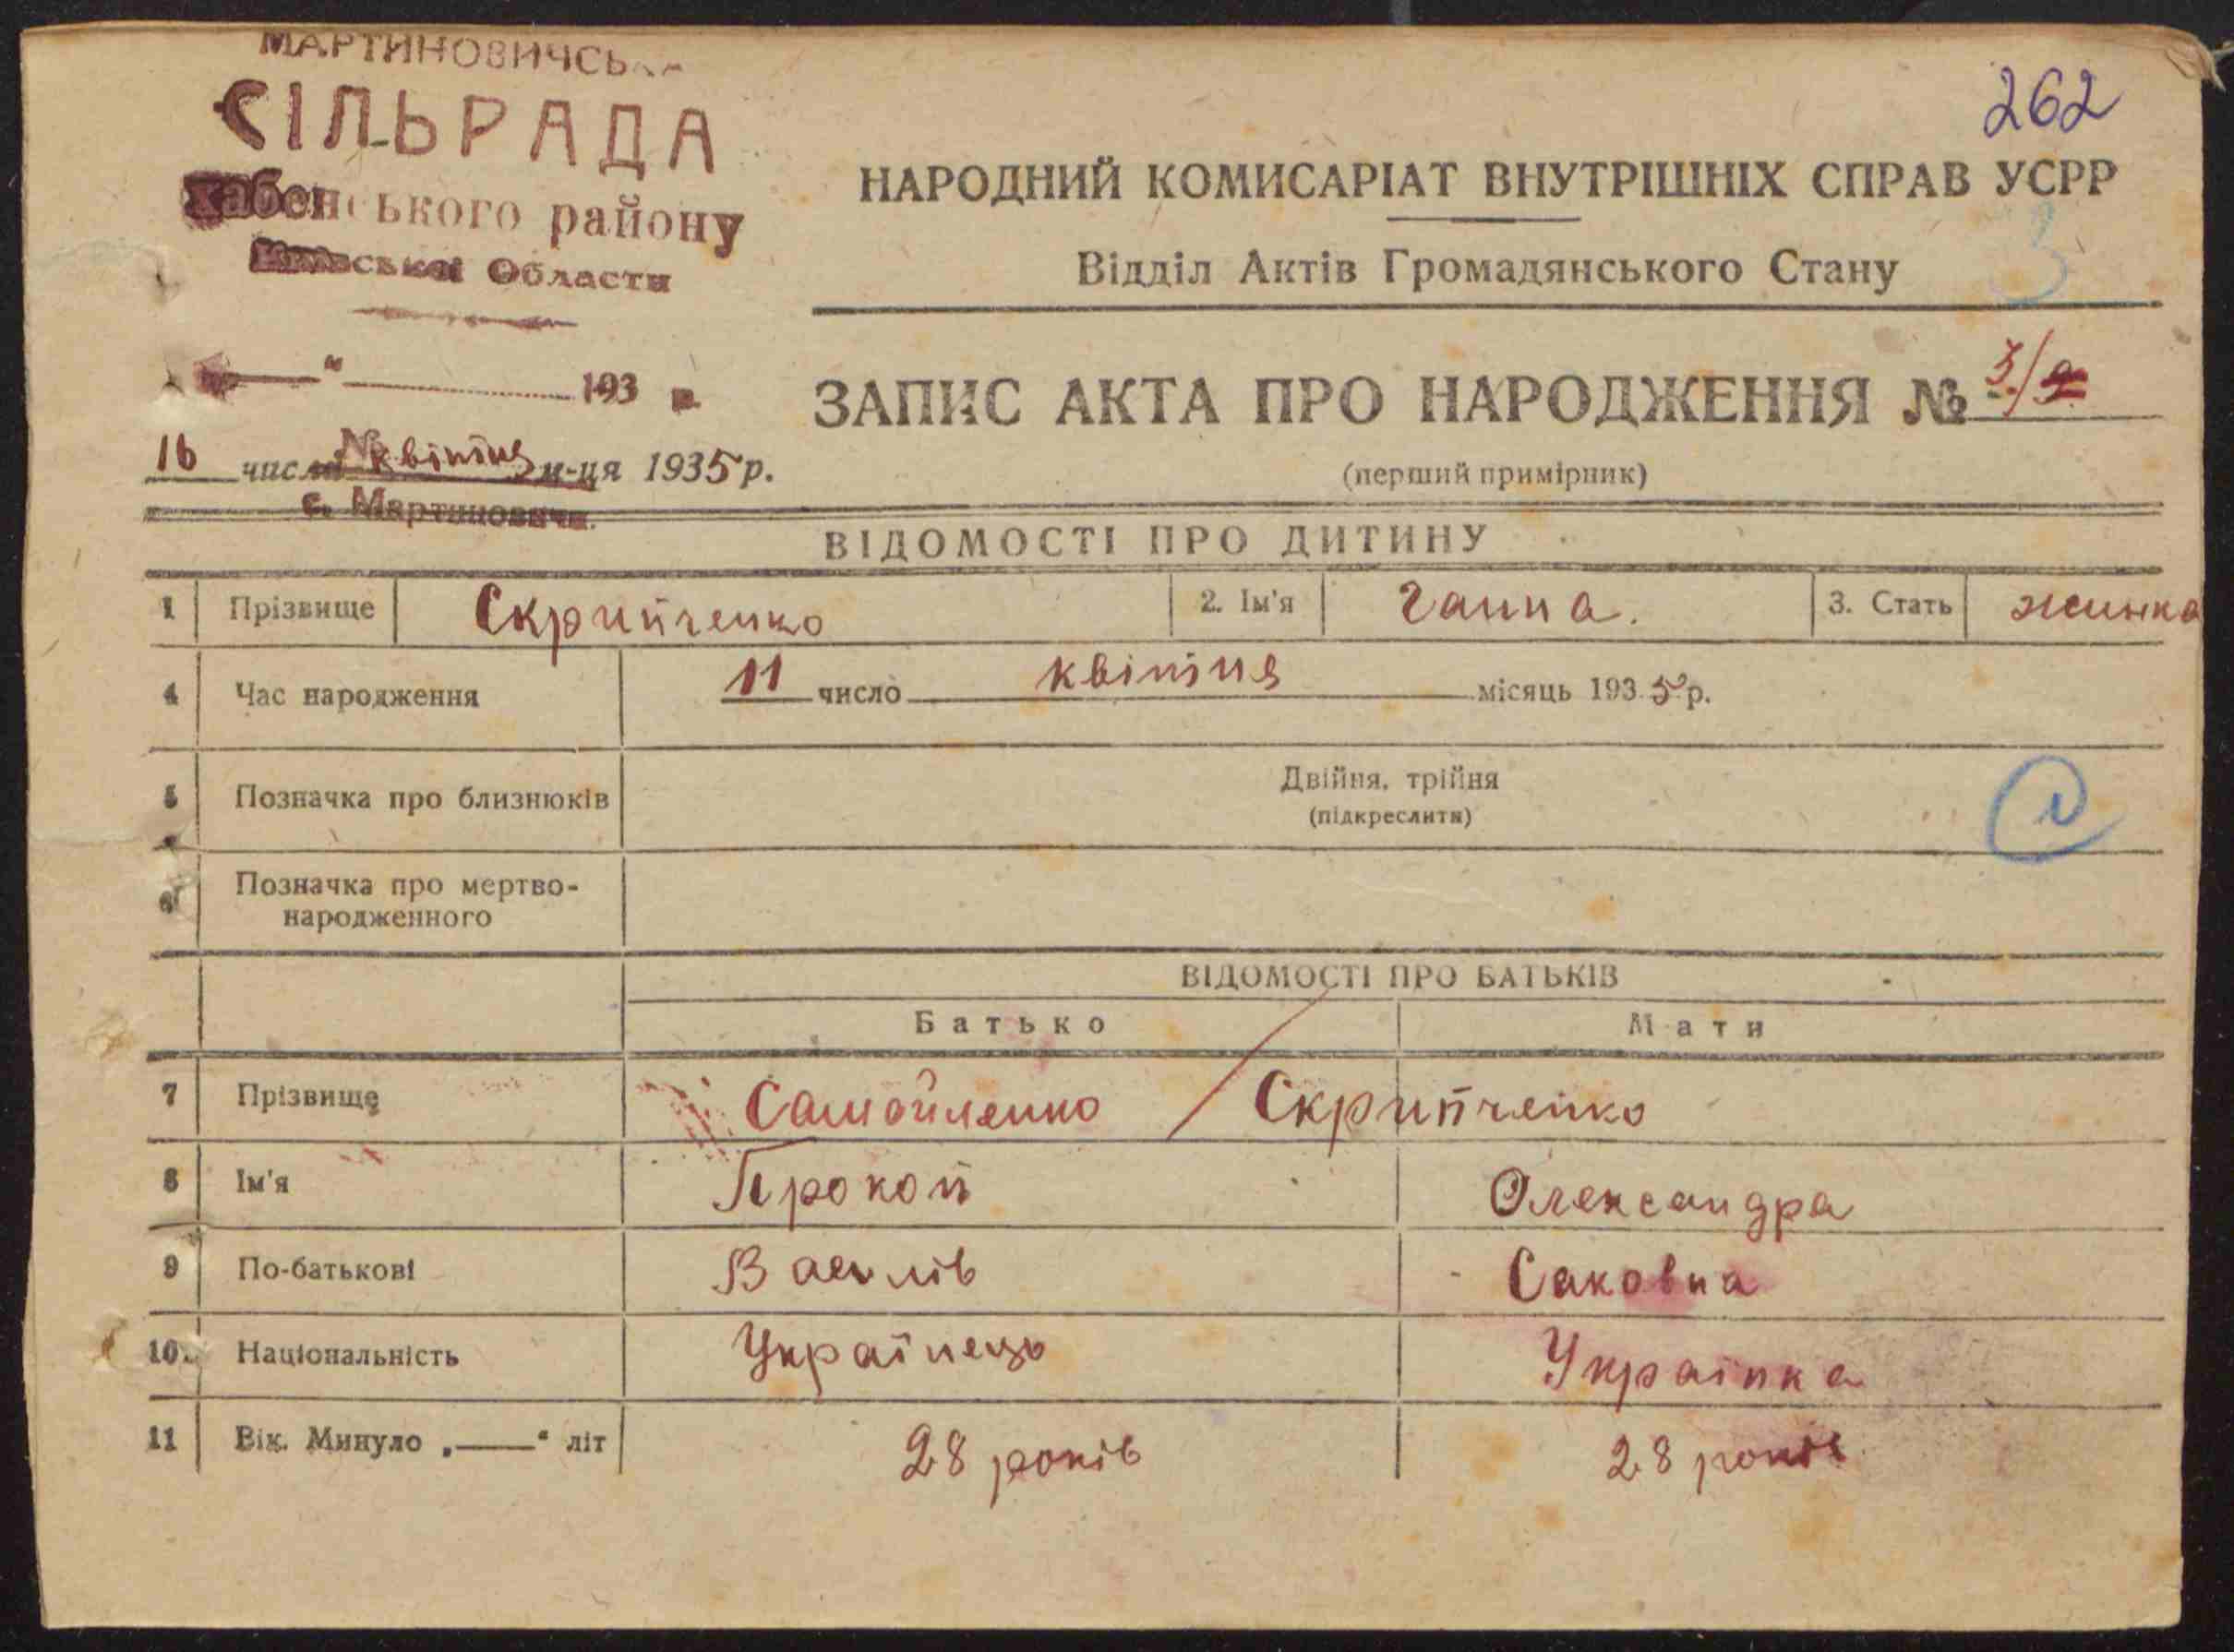 МАРТИНОВИЧСЬ
СІЛЬРАДА
Хабенського району
Київської Области
" 193
16 числа квітня м-ця 1935 р.
с. Мартиновичи.
262
НАРОДНИЙ КОМИСАРІАТ ВНУТРІШНІХ СПРАВ УСРР
3
Відділ Актів Громадянського Стану
ЗАПИС АКТА ПРО НАРОДЖЕННЯ № 3/
(перший примірник)
ВІДОМОСТІ ПРО ДИТИНУ
1 Прізвище Скрипченко 2. Ім'я Ганна. 3. Стать жинка
4 Час народження 11 число квітня місяць 1935 р.
5 Позначка про близнюків Двійня, трійня
(підкреслити)
6 Позначка про мертво-
народженного
ВІДОМОСТІ ПРО БАТЬКІВ
Батько Мати
7 Прізвище Самойленко / Скрипченко
8 Ім'я Прокоп Олександра
9 По-батькові Василів Саковна
10. Національність Українець Українка
11 Вік. Минуло „——" літ 28 років 28 років